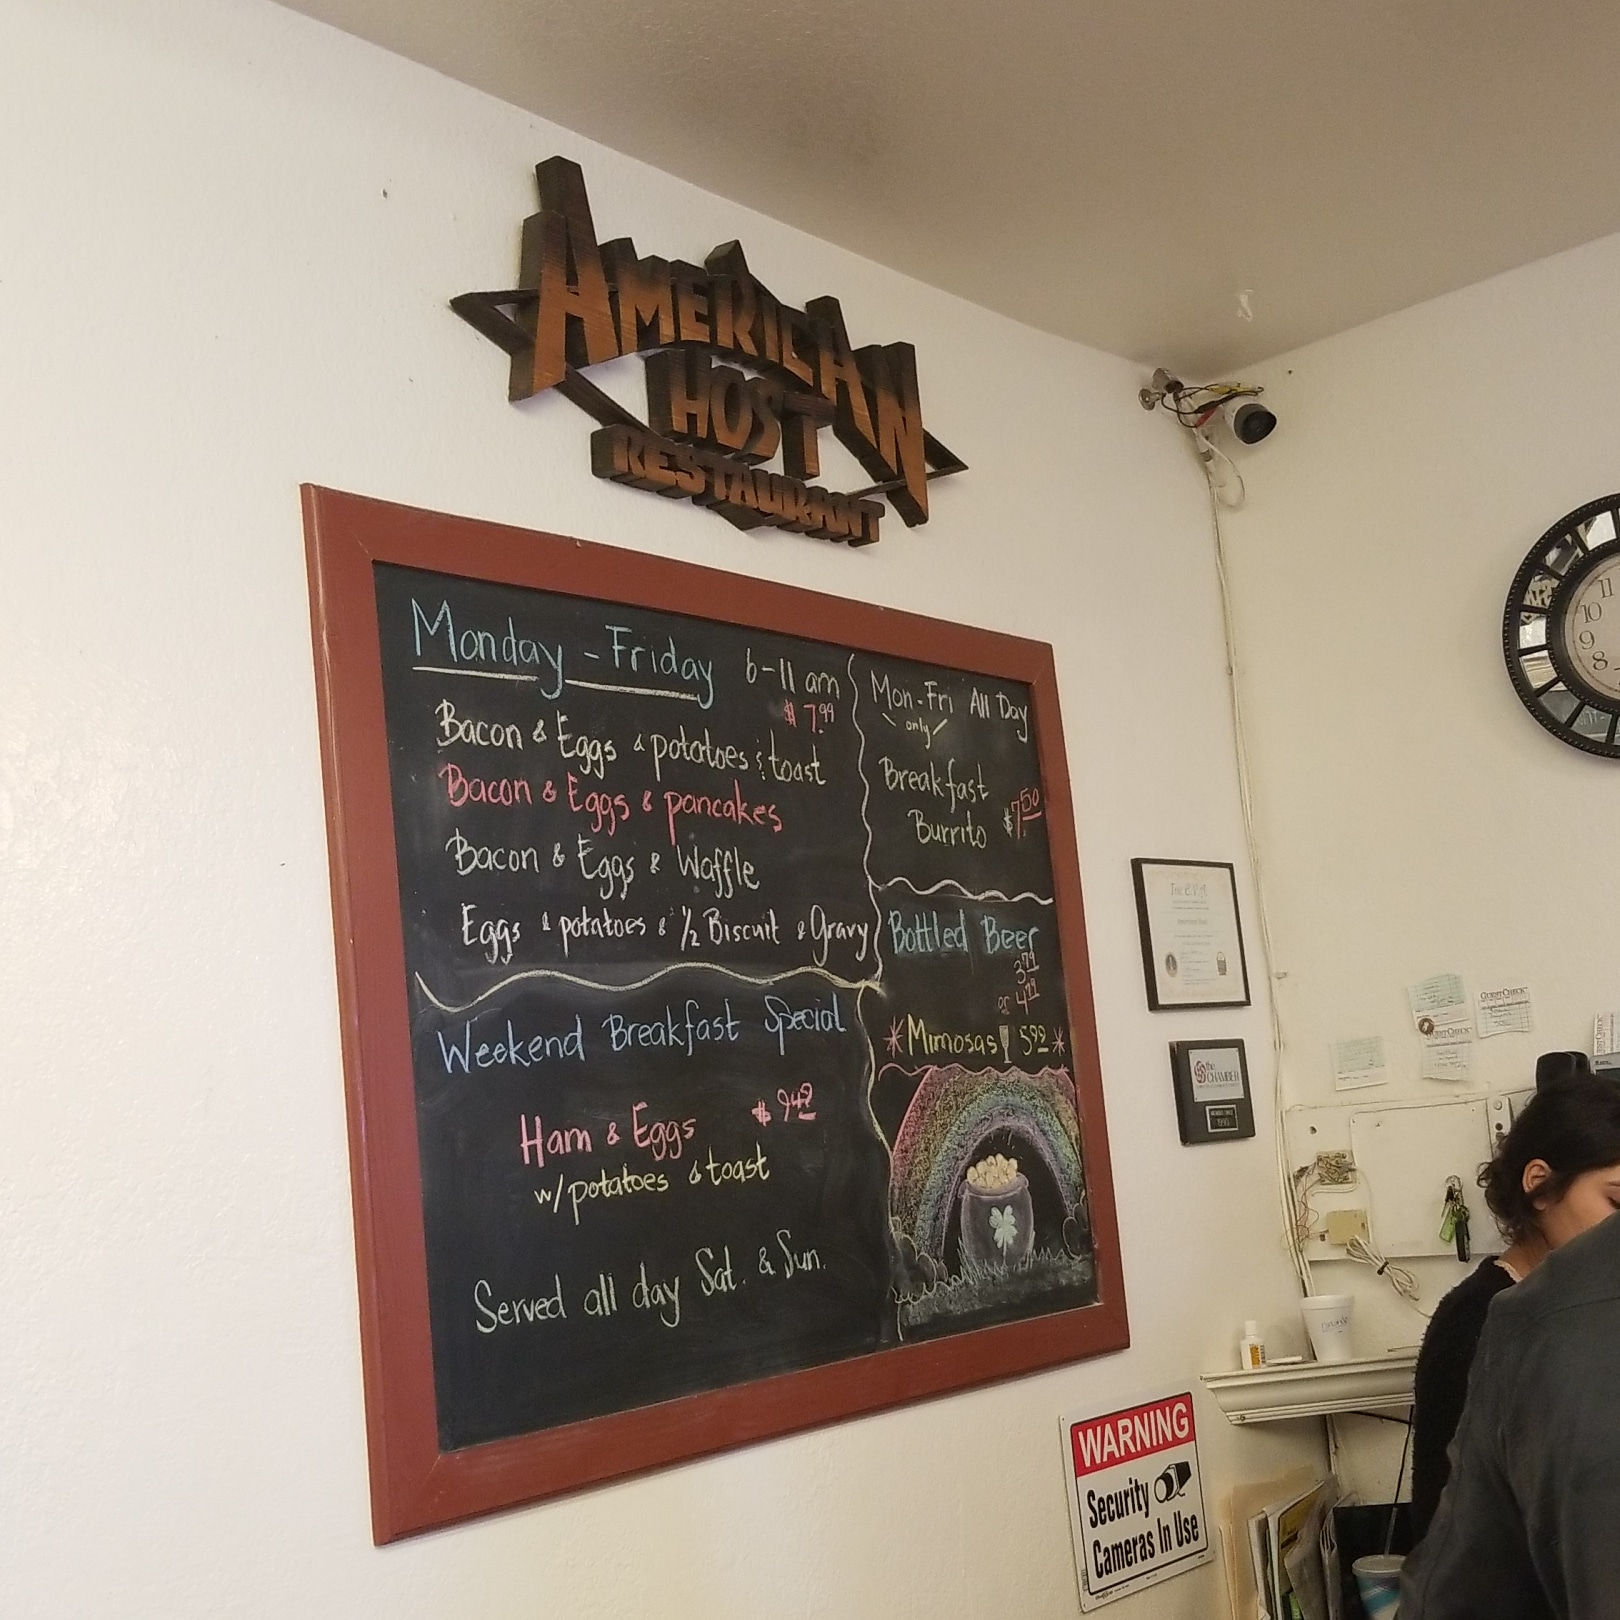 AMERICAN
HOST
RESTAURANT
Monday - Friday 6-11 am
$7.99
Bacon & Eggs & potatoes & toast
Bacon & Eggs & pancakes
Bacon & Eggs & Waffle
Eggs & potatoes & 1/2 Biscuit & Gravy
Weekend Breakfast Special
Ham & Eggs $9.49
w/ potatoes & toast
Served all day Sat. & Sun.
Mon-Fri All Day
only
Breakfast
Burrito $7.50
Bottled Beer
3.79
or 4.79
*Mimosas 5.99*
11
10
9
8
the
CHAMBER
1990
GUEST CHECK
GUEST CHECK
WARNING
Security
Cameras In Use